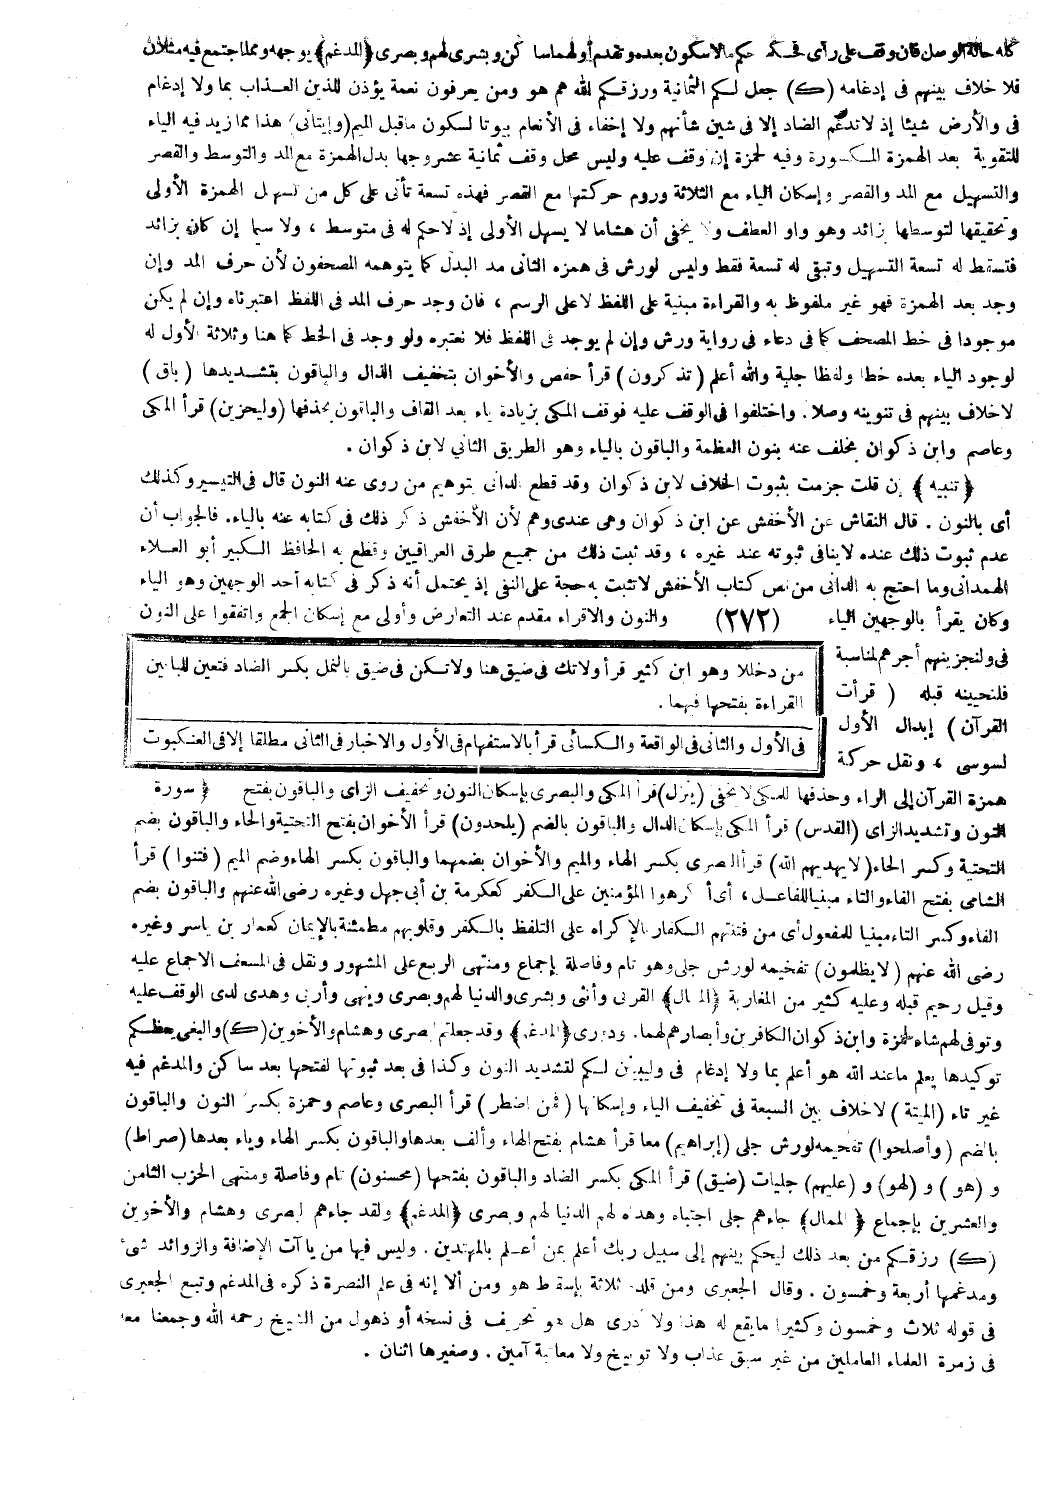 كله حالة الوصل فان وقف على رأى فحكمه حكم مالا سكون بعده وتقدم أولهما ساكن وبشرى لهم وبصرى ﴿المدغم﴾ يوجهه ومما اجتمع فيه مثلان
فلا خلاف بينهم فى إدغامه (ك) جعل لكم الثمانية ورزقكم لله هم هو ومن يعرفون نعمة يؤذن للذين العذاب بما ولا إدغام
فى والأرض شيئا إذ لا تدغم الضاد إلا فى شين شأنهم ولا إخفاء فى الأنعام بيوتا لسكون ماقبل الميم (وإيتائى) هذا مما زيد فيه الياء
للتقوية بعد الهمزة المكسورة وفيه لحمزة إن وقف عليه وليس محل وقف ثمانية عشر وجها بدل الهمزة مع المد والتوسط والقصر
والتسهيل مع المد والقصر وإسكان الياء مع الثلاثة وروم حركتها مع القصر فهذه تسعة تأتى على كل من تسهيل الهمزة الأولى
وتحقيقها لتوسطها بزائد وهو واو العطف ولا يخفى أن هشاما لا يسهل الأولى إذ لا حكم له فى متوسط ، ولا سيما إن كان بزائد
فتسقط له تسعة التسهيل وتبقى له تسعة فقط وليس لورش فى همزه الثانى مد البدل كما يتوهمه المصحفون لأن حرف المد وإن
وجد بعد الهمزة فهو غير ملفوظ به والقراءة مبنية على اللفظ لا على الرسم ، فان وجد حرف المد فى اللفظ اعتبرناه وإن لم يكن
موجودا فى خط المصحف كما فى دعاء فى رواية ورش وإن لم يوجد فى اللفظ فلا نعتبره ولو وجد فى الخط كما هنا وثلاثة الأول له
لوجود الياء بعده خطا ولفظا جلية والله أعلم (تذكرون) قرأ حفص والأخوان بتخفيف الذال والباقون بتشديدها (باق)
لا خلاف بينهم فى تنوينه وصلا. واختلفوا فى الوقف عليه فوقف المكى بزيادة ياء بعد القاف والباقون بحذفها (وليجزين) قرأ المكى
وعاصم وابن ذكوان بخلف عنه بنون العظمة والباقون بالياء وهو الطريق الثانى لابن ذكوان .
﴿تنبيه﴾ إن قلت جزمت بثبوت الخلاف لابن ذكوان وقد قطع الدانى بتوهيم من روى عنه النون قال فى التيسير وكذلك
أى بالنون . قال النقاش عن الأخفش عن ابن ذكوان وهى عندى وهم لأن الأخفش ذكر ذلك فى كتابه عنه بالياء. فالجواب أن
عدم ثبوت ذلك عنده لا ينافى ثبوته عند غيره ، وقد ثبت ذلك من جميع طرق العراقيين وقطع به الحافظ الكبير أبو العلاء
الهمدانى وما احتج به الدانى من نص كتاب الأخفش لا تثبت به حجة على النفى إذ يحتمل أنه ذكر فى كتابه أحد الوجهين وهو الياء
وكان يقرأ بالوجهين الياء (٢٧٢) والنون والاقراء مقدم عند التعارض وأولى مع إسكان الجمع واتفقوا على النون
فى ولنجزينهم أجرهم لمناسبة
فلنحيينه قبله ( قرأت
القرآن ) إبدال الأول
لسوسى ، ونقل حركة
من دخللا وهو ابن كثير قرأ ولا تك فى ضيق هنا ولا تكن فى ضيق بالنمل بكسر الضاد فتعين للباقين
القراءة بفتحها فيهما .
فى الأول والثانى فى الواقعة والكسائى قرأ بالاستفهام فى الأول والاخبار فى الثانى مطلقا إلا فى العنكبوت
همزة القرآن إلى الراء وحذفها للمكى لا يخفى (ينزل) قرأ المكى والبصرى بإسكان النون وتخفيف الزاى والباقون بفتح ﴿ سورة
النون وتشديد الزاى (القدس) قرأ المكى بإسكان الدال والباقون بالضم (يلحدون) قرأ الأخوان بفتح التحتية والحاء والباقون بضم
التحتية وكسر الحاء (لا يهديهم الله) قرأ البصرى بكسر الهاء والميم والأخوان بضمهما والباقون بكسر الهاء وضم الميم (فتنوا) قرأ
الشامى بفتح الفاء والتاء مبنيا للفاعل ، أى أكرهوا المؤمنين على الكفر كعكرمة بن أبى جهل وغيره رضى الله عنهم والباقون بضم
الفاء وكسر التاء مبنيا للمفعول أى من فتنتهم الكفار بالإكراه على التلفظ بالكفر وقلوبهم مطمئنة بالإيمان كعمار بن ياسر وغيره
رضى الله عنهم (لا يظلمون) تفخيمه لورش جلى وهو تام وفاصلة بإجماع ومنتهى الربع على المشهور ونقل فى المسعف الاجماع عليه
وقيل رحيم قبله وعليه كثير من المغاربة ﴿الممال﴾ القربى وأنثى وبشرى والدنيا لهم وبصرى وينهى وأربى وهدى لدى الوقف عليه
وتوفى لهم شاء لحمزة وابن ذكوان الكافرين وأبصارهم لهما. ودورى ﴿المدغم﴾ وقد جعلتم لبصرى وهشام والأخوين (ك) والبغى يعظكم
توكيدها يعلم ما عند الله هو أعلم بما ولا إدغام فى وليبينن لكم لتشديد النون وكذا فى بعد ثبوتها لفتحها بعد ساكن والمدغم فيه
غير تاء (الميتة) لا خلاف بين السبعة فى تخفيف الياء وإسكانها (فمن اضطر) قرأ البصرى وعاصم وحمزة بكسر النون والباقون
بالضم (وأصلحوا) تفخيمه لورش جلى (إبراهيم) معا قرأ هشام بفتح الهاء وألف بعدها والباقون بكسر الهاء وياء بعدها (صراط)
و (هو) و (لهو) و (عليهم) جليات (ضيق) قرأ المكى بكسر الضاد والباقون بفتحها (محسنون) تام وفاصلة ومنتهى الحزب الثامن
والعشرين بإجماع ﴿الممال﴾ جاءهم جلى اجتباه وهداه لهم الدنيا لهم وبصرى ﴿المدغم﴾ ولقد جاءهم لبصرى وهشام والأخوين
(ك) رزقكم من بعد ذلك ليحكم بينهم إلى سبيل ربك أعلم بمن أعلم بالمهتدين . وليس فيها من ياآت الإضافة والزوائد شىء
ومدغمها أربعة وخمسون . وقال الجعبرى ومن قلده ثلاثة بإسقاط هو ومن ألا إنه فى علم النصرة ذكره فى المدغم وتبع الجعبرى
فى قوله ثلاث وخمسون وكثيرا مايقع له هذا ولا أدرى هل هو تحريف فى نسخه أو ذهول من الشيخ رحمه الله وجمعنا معه
فى زمرة العلماء العاملين من غير سبق عذاب ولا توبيخ ولا معاتبة آمين . وصغيرها اثنان .